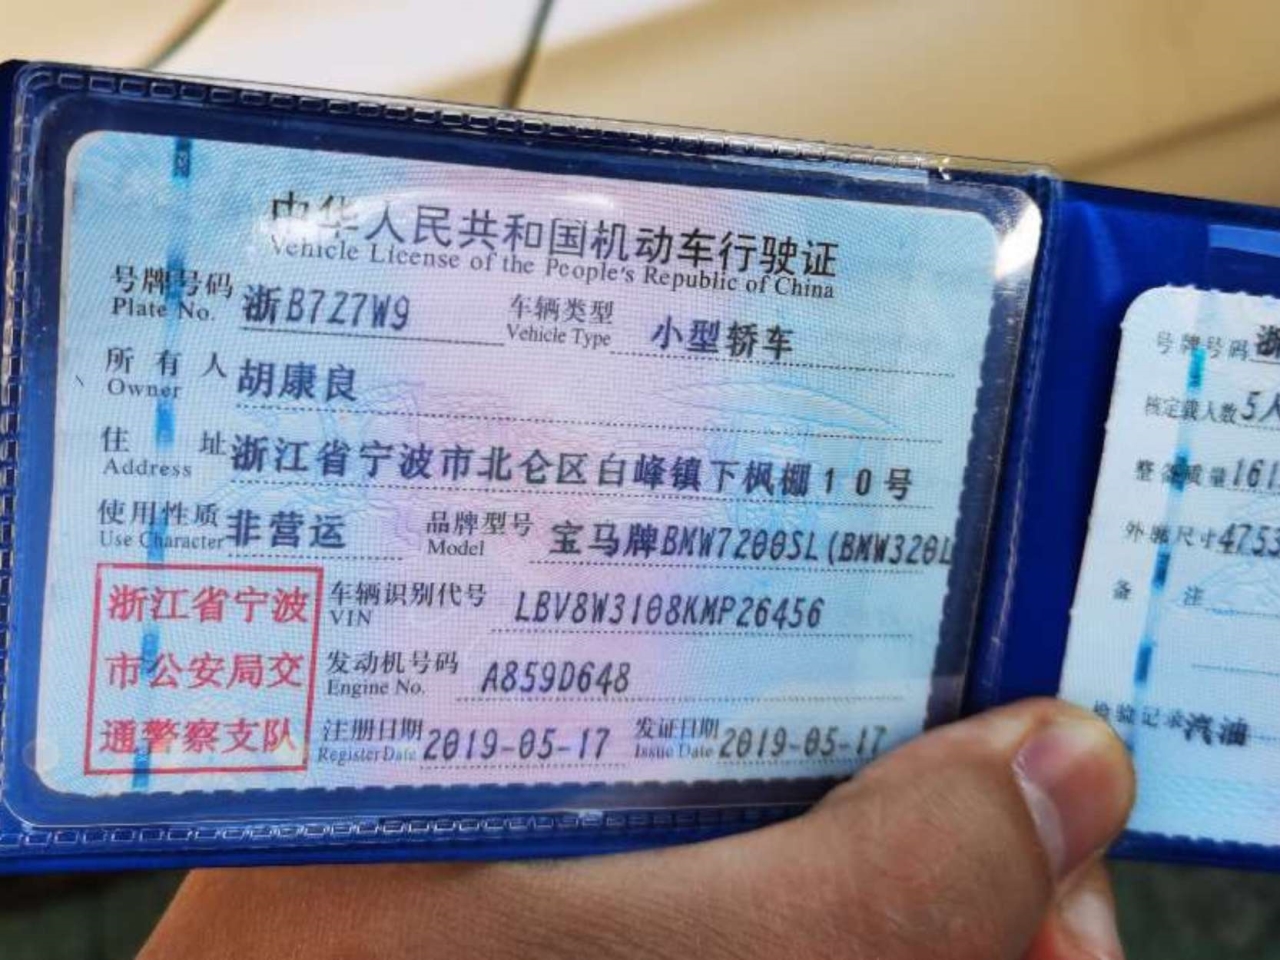 中华人民共和国机动车行驶证
Vehicle License of the People's Republic of China
号牌号码 浙B7Z7W9 车辆类型 小型轿车
Plate No. Vehicle Type
所有人 胡康良
Owner
住址 浙江省宁波市北仑区白峰镇下枫棚10号
Address
使用性质 非营运 品牌型号 宝马牌BMW7200SL(BMW320L
Use Character Model
浙江省宁波
市公安局交
通警察支队
车辆识别代号 LBV8W3108KMP26456
VIN
发动机号码 A859D648
Engine No.
注册日期 2019-05-17 发证日期 2019-05-17
Register Date Issue Date
号牌号码 浙
核定载人数 5人
整备质量 161
外廓尺寸 4753
备注
检验记录 汽油